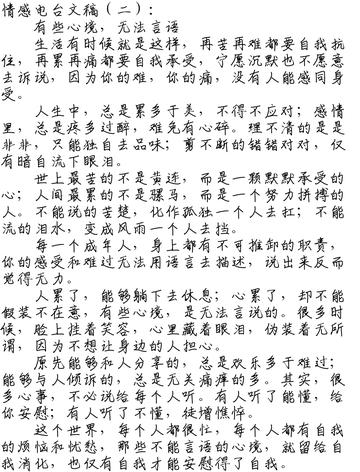 情感电台文稿（二）：
有些心境，无法言语
生活有时候就是这样，再苦再难都要自我抗
住，再累再痛都要自我承受，宁愿沉默也不愿意
去诉说，因为你的难，你的痛，没有人能感同身
受。
人生中，总是累多于美，不得不应对；感情
里，总是疼多过醉，难免有心碎。理不清的是是
非非，只能独自去品味；剪不断的错错对对，仅
有暗自流下眼泪。
世上最苦的不是黄连，而是一颗默默承受的
心；人间最累的不是骡马，而是一个努力拼搏的
人。不能说的苦楚，化作孤独一个人去扛；不能
流的泪水，变成风雨一个人去挡。
每一个成年人，身上都有不可推卸的职责，
你的感受和难过无法用语言去描述，说出来反而
觉得无力。
人累了，能够躺下去休息；心累了，却不能
假装不在意，有些心境，是无法言说的。很多时
候，脸上挂着笑容，心里藏着眼泪，伪装着无所
谓，因为不想让身边的人担心。
原先能够和人分享的，总是欢乐多于难过；
能够与人倾诉的，总是无关痛痒的多。其实，很
多心事，不必说给每个人听。有人听了能懂，给
你安慰；有人听了不懂，徒增憔悴。
这个世界，每个人都很忙，每个人都有自我
的烦恼和忧愁，那些不能言语的心境，就留给自
我消化，也仅有自我才能安慰得了自我。